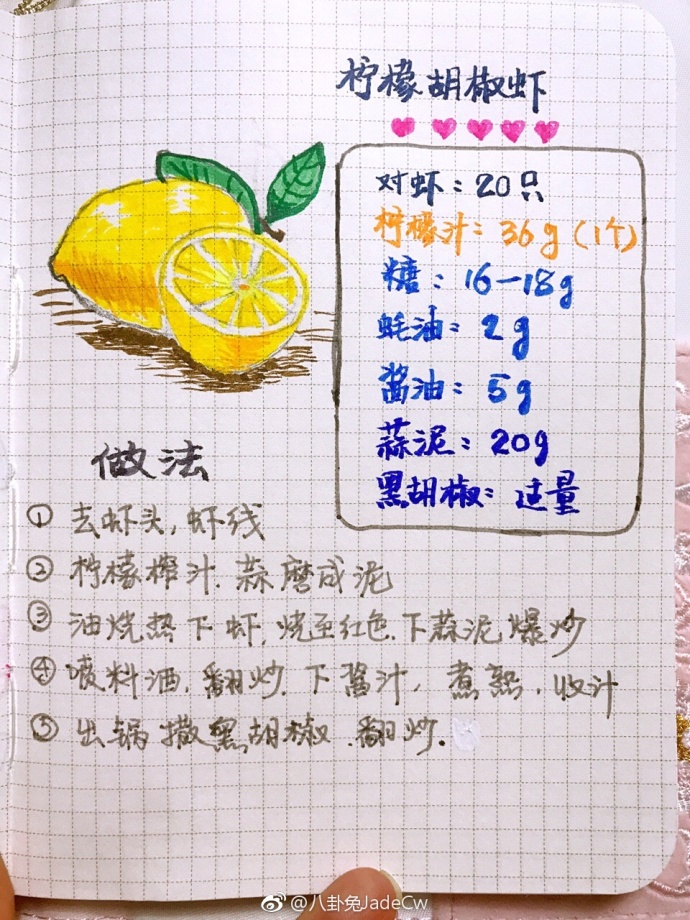 柠檬胡椒虾
对虾：20只
柠檬汁：36g（1个）
糖：16—18g
蚝油：2g
酱油：5g
蒜泥：20g
黑胡椒：适量
做法
① 去虾头，虾线
② 柠檬榨汁.蒜磨成泥
③ 油烧热下虾，烧至红色.下蒜泥爆炒
④ 喷料酒，翻炒.下酱汁，煮熟.收汁
⑤ 出锅撒黑胡椒.翻炒.
@八卦兔JadeCw